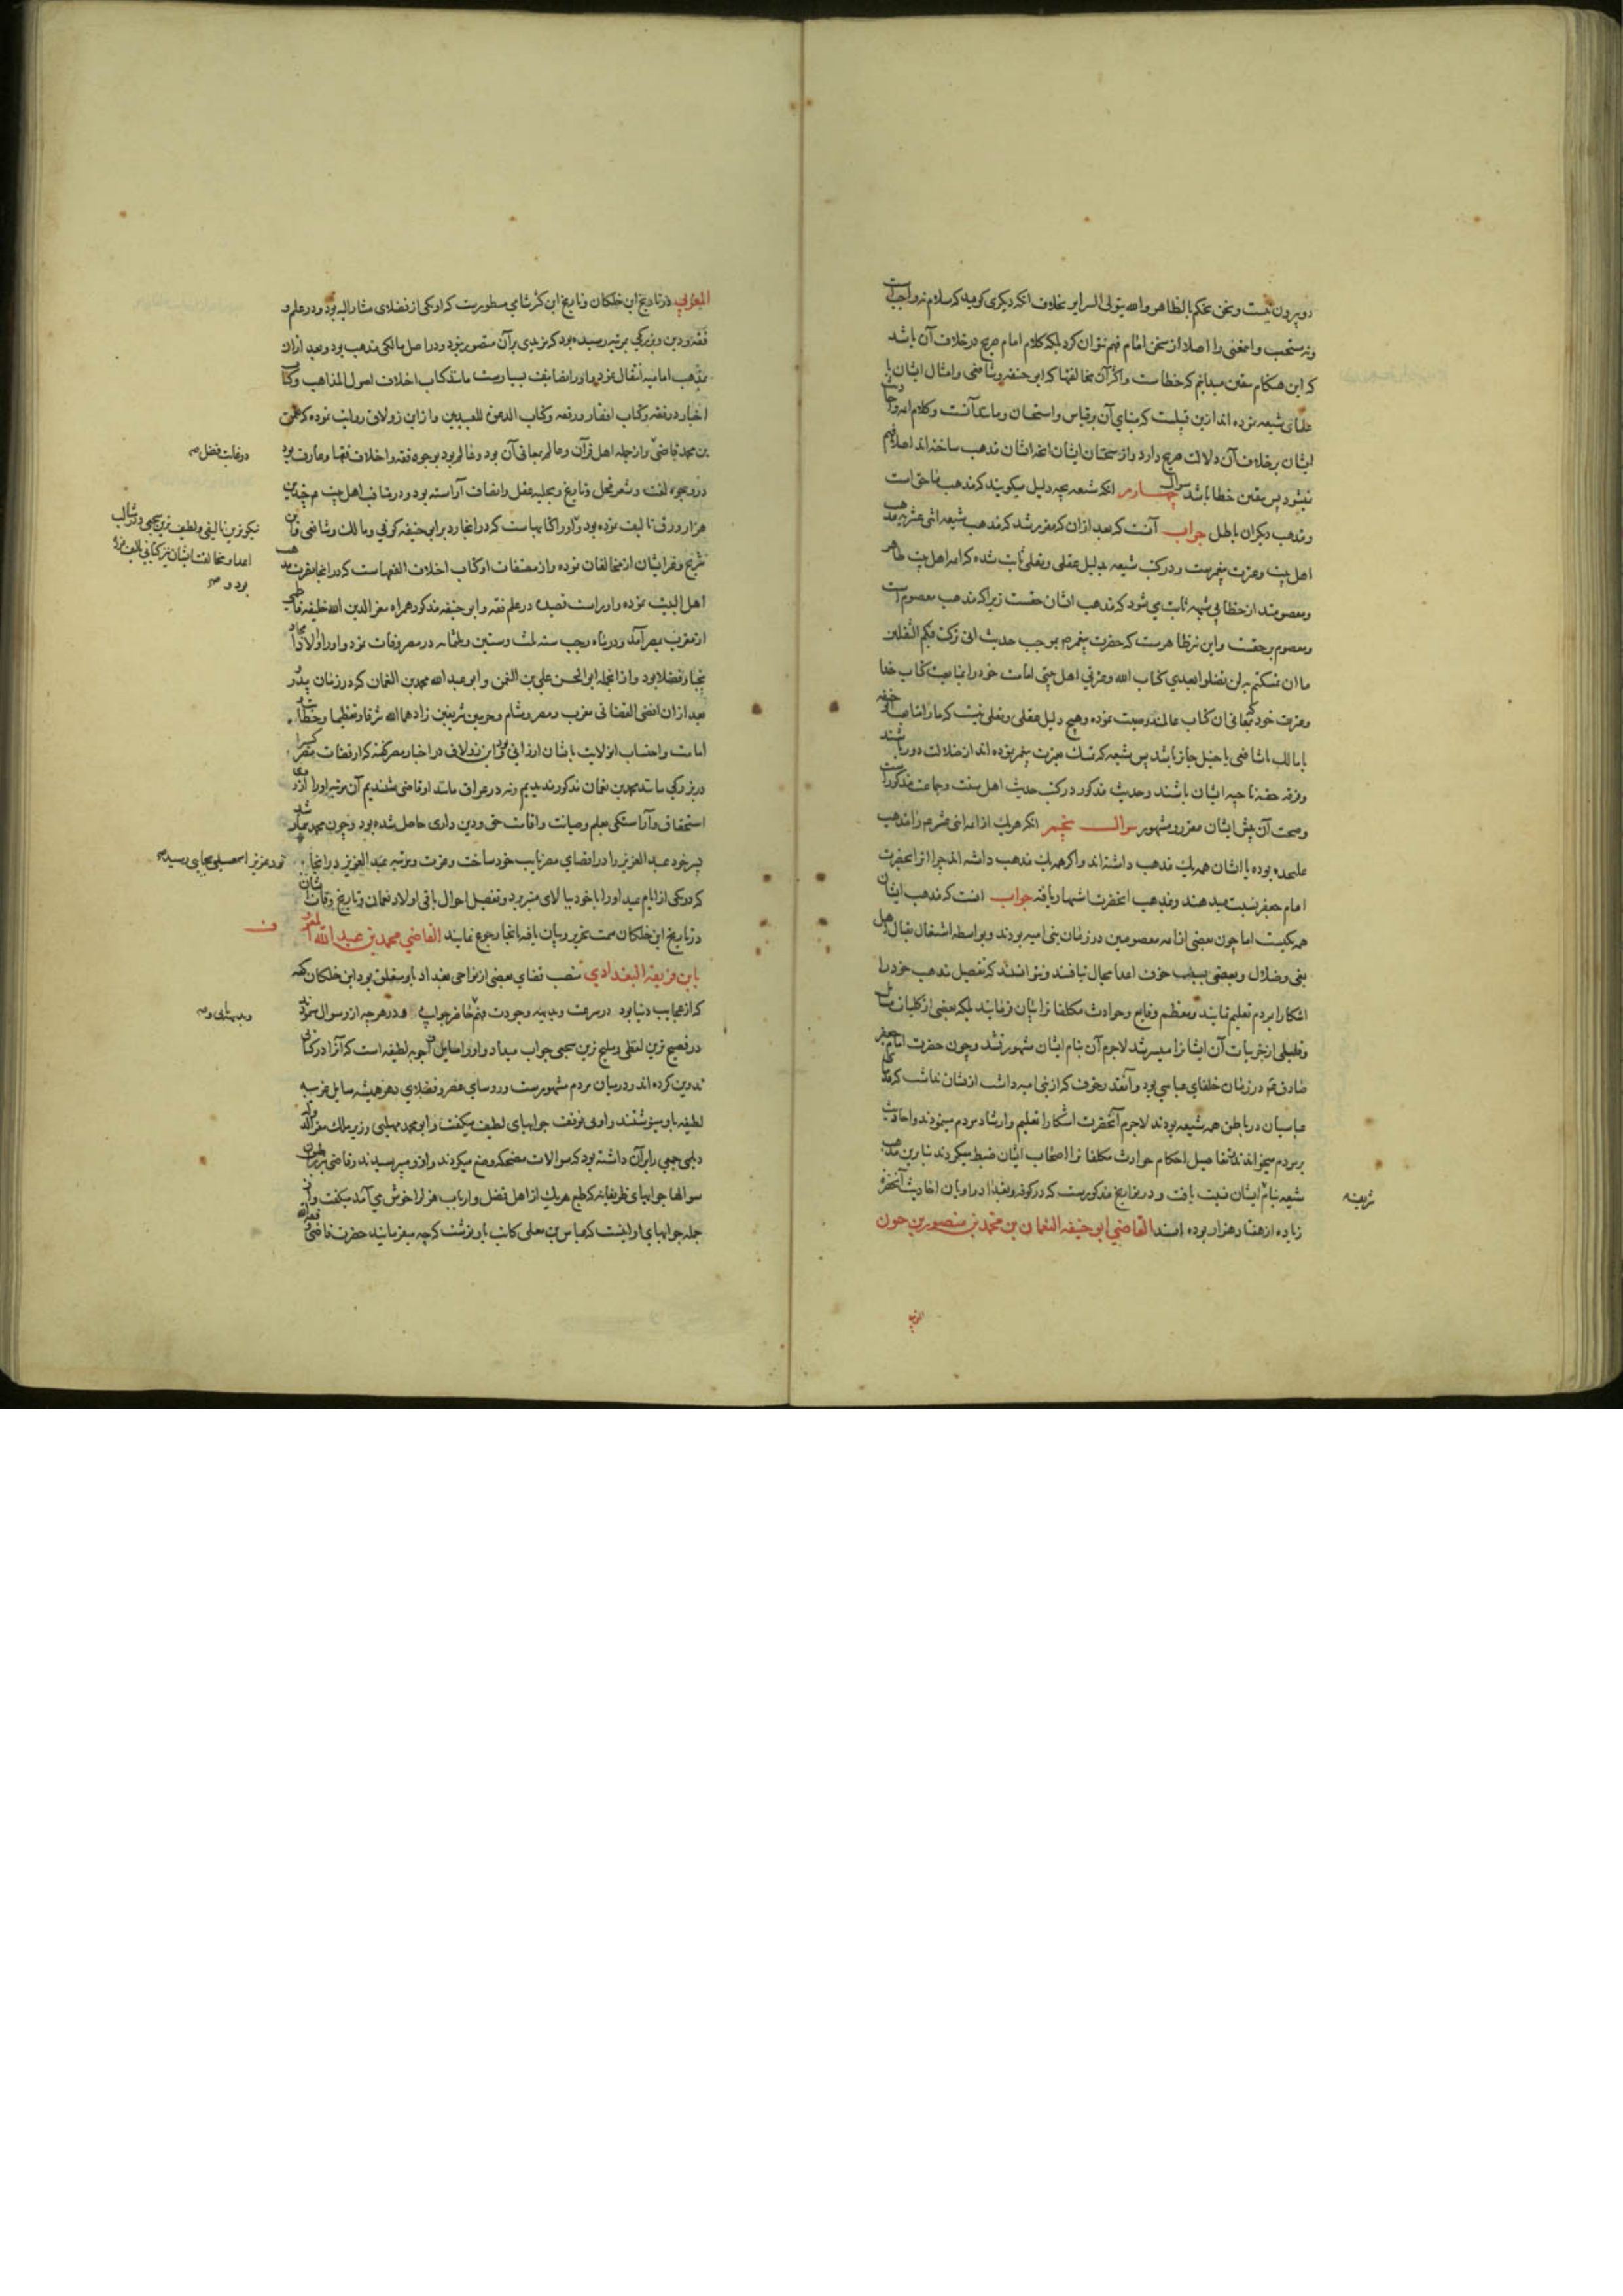 دو بیرون نیست و نحن نحکم بالظاهر والله یتولی السرایر بخلاف انکه دیگری گوید که سلام نه واجب است
ونه مستحب و این معنی را اصلا از سخن امام فهم نتوان کرد بلکه کلام امام صریح در خلاف آن باشد
که این هنگام بیقین میدانیم که خطاست و اکثر آن مخالفتها که ابو حنیفه و شافعی و امثال ایشان با
علمای شیعه نموده اند ازین قبیلست که بنای آن بر قیاس و استحسان و مانند آنست و کلام ائمه
ایشان بر خلاف آن دلالت صریح دارد و از سخنان ایشان انچه ایشان مذهب ساخته اند اصلا فهم
نمیشود پس بیقین خطا باشد سوال چهارم انکه شیعه بچه دلیل میگویند که مذهب ما حق است
و مذهب دیگران باطل جواب آنست که بعد ازان که مقرر شد که مذهب شیعه اثنی عشریه مذهب
اهل بیت و عترت پیغمبرست و در کتب شیعه بدلیل عقلی و نقلی ثابت شده که ائمه اهل بیت طاهر
و معصومند از خطا بی شبهه ثابت می شود که مذهب ایشان حقست زیرا که مذهب معصوم است
و معصوم بر حقست و این نیز ظاهرست که حضرت پیغمبر بموجب حدیث انی ترکت فیکم الثقلین
ما ان تمسکتم به لن تضلوا بعدی کتاب الله و عترتی اهل بیتی امت خود را بمتابعت کتاب خدا
و عترت خود که معانی ان کتاب عالمند وصیت نموده و هیچ دلیل عقلی و نقلی نیست که ما را متابعت ابو حنیفه
یا مالک یا شافعی یا حنبل جایز باشد پس شیعه که تمسک بعترت پیغمبر نموده اند از ضلالت دور باشند
و فرقه حقه ناجیه ایشان باشند و حدیث مذکور در کتب حدیث اهل سنت و جماعت مذکور است
و صحت آن پیش ایشان مقرر و مشهور سوال پنجم انکه هر یک از ائمه اثنی عشر را مذهب
علیحده بوده یا ایشان همه یک مذهب داشته اند و اگر همه یک مذهب داشته اند چرا انرا بحضرت
امام جعفر نسبت میدهند و بمذهب انحضرت اشتهار یافته جواب انست که مذهب ایشان
همه یکیست اما چون بعضی از ائمه معصومین در زمان بنی امیه بودند و بواسطه اشتغال بقتال اهل
بغی و ضلال و بعضی بسبب خوف اعدا مجال نیافتند و نتوانستند که تفصیل مذهب خود را
اشکارا بمردم تعلیم نمایند و معظم وقایع و حوادث مکلفان را بیان فرمایند بلکه بعضی از کلیات مسایل
و قلیلی از جزییات آن ایشان را میسر شد لاجرم آن بنام ایشان مشهور نشد و چون حضرت امام جعفر
صادق در زمان خلفای عباسی بود و آنقدر خوف که از بنی امیه داشت ازیشان نداشت
عباسیان در باطن همه شیعه بودند لاجرم آنحضرت اشکارا تعلیم و ارشاد مردم مینمودند و احادیث
بر مردم میخواندند تفاصیل احکام حوادث مکلفان را اصحاب ایشان ضبط میکردند بنابرین مذهب
شیعه بنام ایشان نسبت یافت و در تواریخ مذکورست که در کوفه و بغداد راویان احادیث آنحضرت
زیاده از هفتاد هزار بوده اند القاضی ابو حنیفه النعمان بن محمد بن منصور بن حیون
شریفه
المغربی
المغربی در تاریخ ابن خلکان و تاریخ ابن کثیر شامی مسطورست که او یکی از فضلای مشار الیه بود و در علم و
فقه و دین و بزرگی بمرتبه رسیده بود که مزیدی بر آن متصور نبود و در اصل مالکی مذهب بود و بعد ازان
بمذهب امامیه انتقال نمود و او را تصانیف بسیارست مانند کتاب اختلاف اصول المذاهب و کتاب
اخبار در فقه و کتاب افتقار در فقه و کتاب الدعوة للعبیدیین و از ابن زولاق روایت نموده که نعمان
بن محمد قاضی از جمله اهل قرآن و عالم بمعانی آن بود و عالم بود بوجوه فقه و اختلاف فقها و عارف بود
در غایت فضل
بوجوه لغت و شعر فحل و تاریخ و بحلیه عقل و انصاف آراسته بود و در مناقب اهل بیت چندین
هزار ورق تالیف نموده بود و او را کتابهاست که در انجا رد بر ابو حنیفه کوفی و مالک و شافعی و ابن
نیکوترین تالیفی و لطیف ترین سجعی و در مثالب
اعدا و مخالفت ایشان نیز کتابی تالیف نموده
بود و
شریح و غیر ایشان از مخالفان نموده و از مصنفات او کتاب اختلاف الفقهاست که در انجا نصرت مذهب
اهل البیت نموده و او راست قصیده در علم فقه و ابو حنیفه مذکور همراه معز الدین الله خلیفه فاطمی
از مغرب بمصر آمد و در ماه رجب سنه ثلث و ستین و ثلثمایه در مصر وفات نمود و او را اولاد امجاد
نجبا و فضلا بود و از انجمله ابو الحسن علی بن النعمن و ابو عبد الله محمد بن النعمان که در زمان پدر
بعد ازان اقضی القضاتی مغرب و مصر و شام و حرمین شریفین زادهما الله شرفا و تعظیما و خطابت
امامت و احتساب انولایت بایشان ارزانی بود و ابن زولاق در اخبار مصر گفته که از قضات مصر کسی را
در بزرگی مانند محمد بن نعمان مذکور ندیدیم و نه در عراق مانند او قاضی شنیدیم آن مرتبه او را از روی
استحقاق و آراستگی بعلم و صیانت و اقامت حق و دین داری حاصل شده بود و چون محمد بیمار شد
پسر خود عبد العزیز را در قضای مصر نایب خود ساخت و عزت و مرتبه عبد العزیز در انجا
نزد عزیز اسمعیلی بجایی رسید
که در یکی از ایام عید او را با خود ببالای منبر برد و تفصیل احوال باقی اولاد نعمان و تاریخ وفات ایشان
در تاریخ ابن خلکان سمت تحریر و بیان یافته انجا رجوع نمایند القاضی محمد بن عبد الله المعروف
بابن قریعه البغدادی منصب قضای بعضی از نواحی بغداد باو متعلق بود ابن خلکان گفته
که از عجایب دنیا بود در سرعت و بدیهه وجودت فهم حاضر جوابی و در هر چه ازو سوال نمودند
و بدیهایی و
در فصیح ترین لفظی و ملیح ترین سجعی جواب میداد و او را مسایل و اجوبه لطیفه است که آنرا در کتابی
تدوین کرده اند و در میان مردم مشهورست و روسای عصر و فضلای دهر همیشه مسایل غریبه
لطیفه باو مینوشتند و او بی توقف جوابهای لطیف میگفت و ابو محمد مهلبی وزیر ملک معز الدوله
دیلمی جمعی را بر آن داشته بود که سوالات مضحکه وضع میکردند و ازو میپرسیدند و قاضی
سوالها جوابهای ظریفانه که طبع هر یک از اهل فضل و ارباب هزل را خوش می آمد میگفت و از
جمله جوابهای او اینست که عباس بن معلی کاتب باو نوشت که چه میفرمایند حضرت قاضی